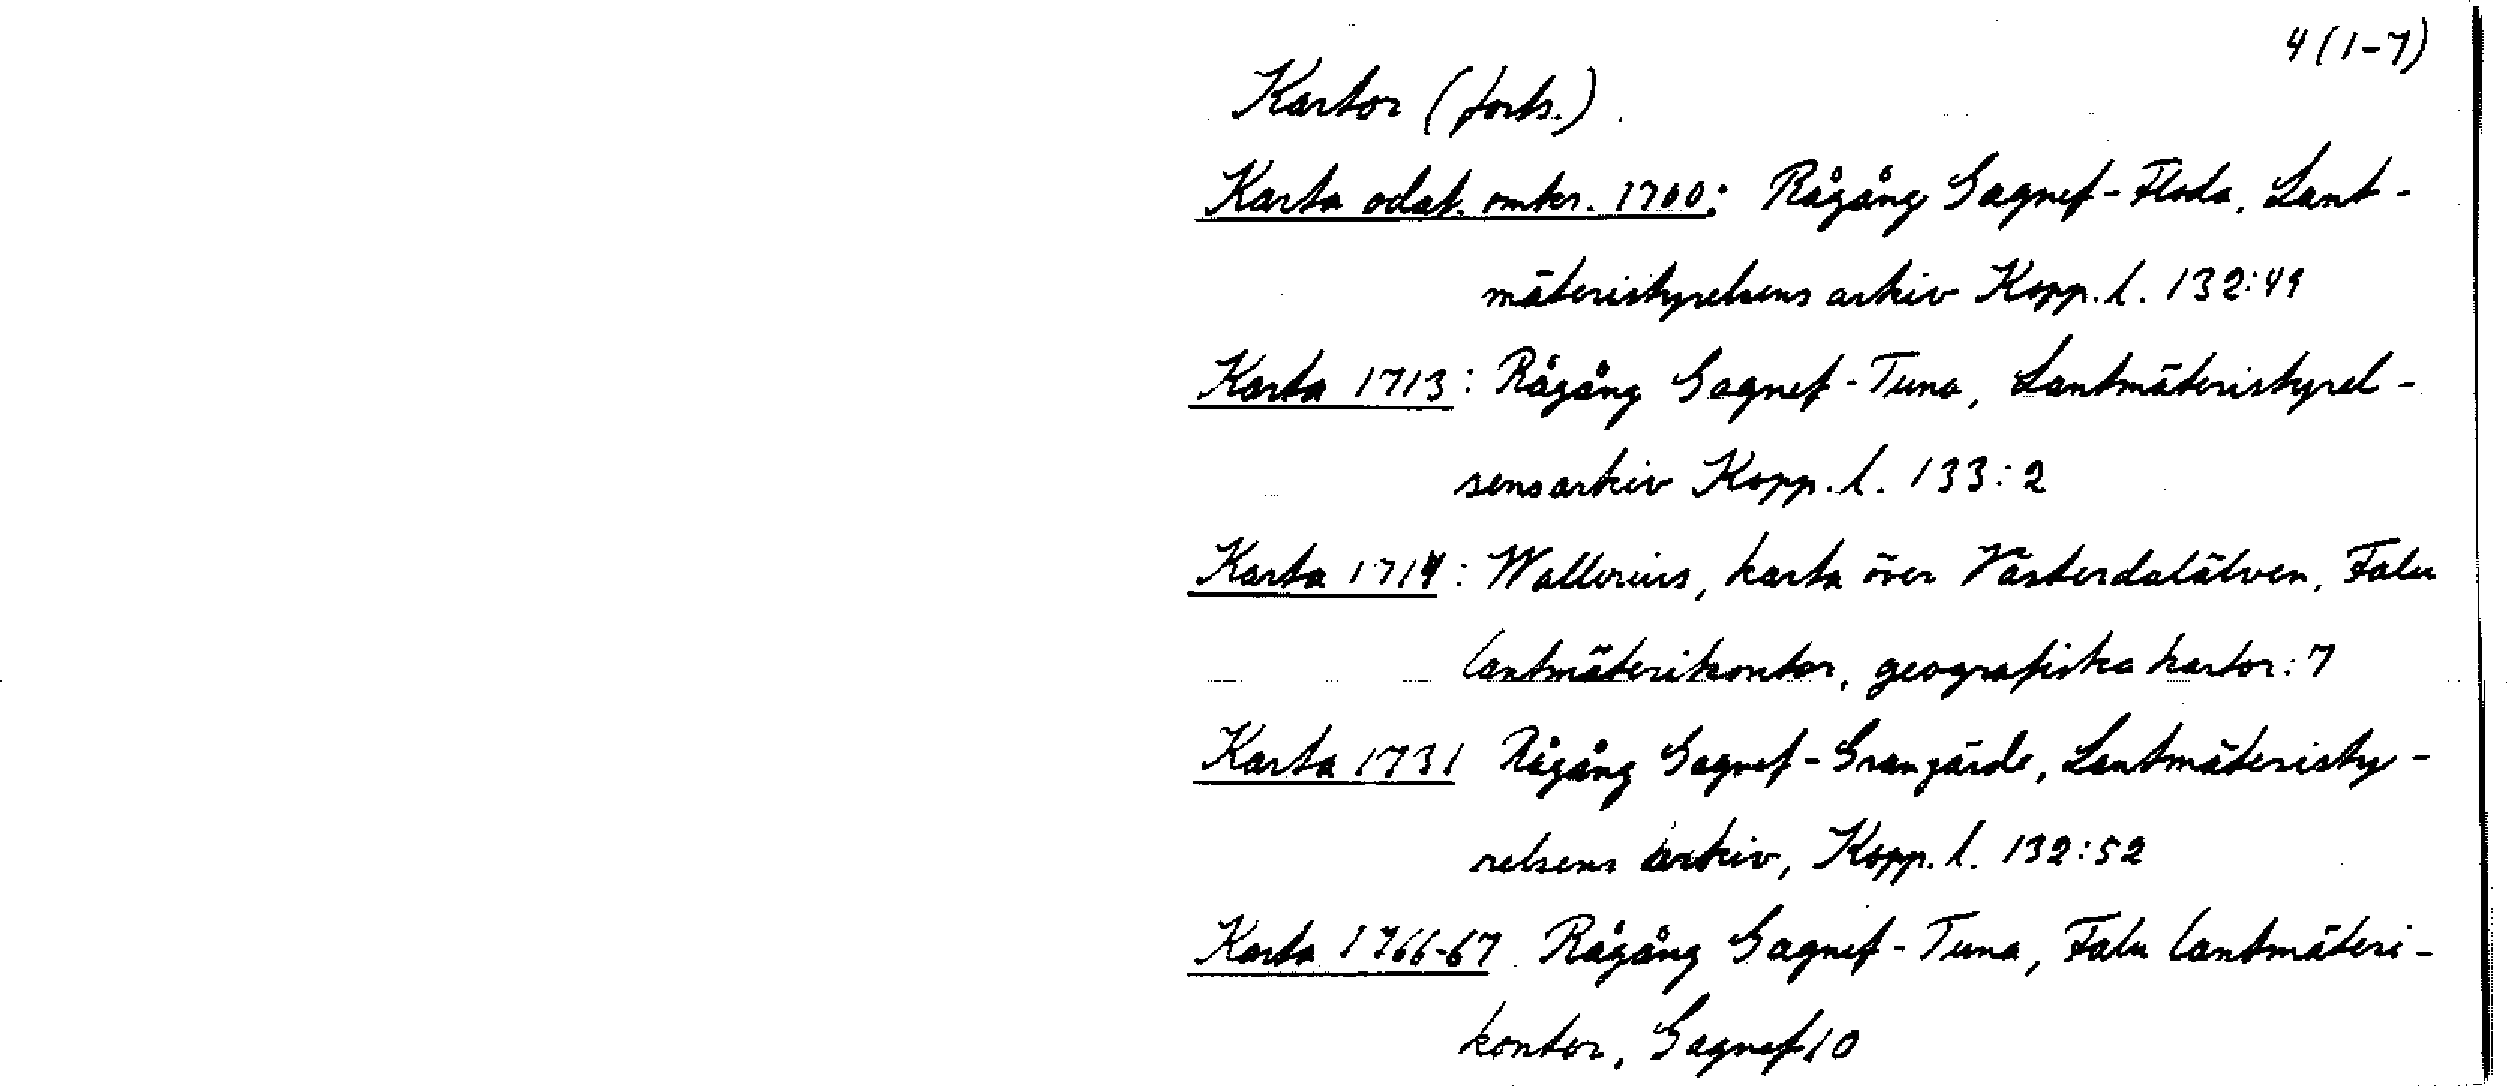 4 (1-7)
Kartor (forts.).
Karta odat. omkr. 1700: Rågång Gagnef-Floda, Lant-
mäteristyrelsens arkiv Kopp. l. 132:49
Karta 1713: Rågång Gagnef-Tuna, Lantmäteristyrel-
sens arkiv Kopp. l. 133:2
Karta 1714: Wallerius, karta över Västerdalälven, Falu
lantmäterikontor, geografiska kartor: 7
Karta 1731 Rågång Gagnef-Grangärde, Lantmäteristy-
relsens arkiv, Kopp. l. 132:52
Karta 1766-67 Rågång Gagnef-Tuna, Falu lantmäteri-
kontor, Gagnef 10